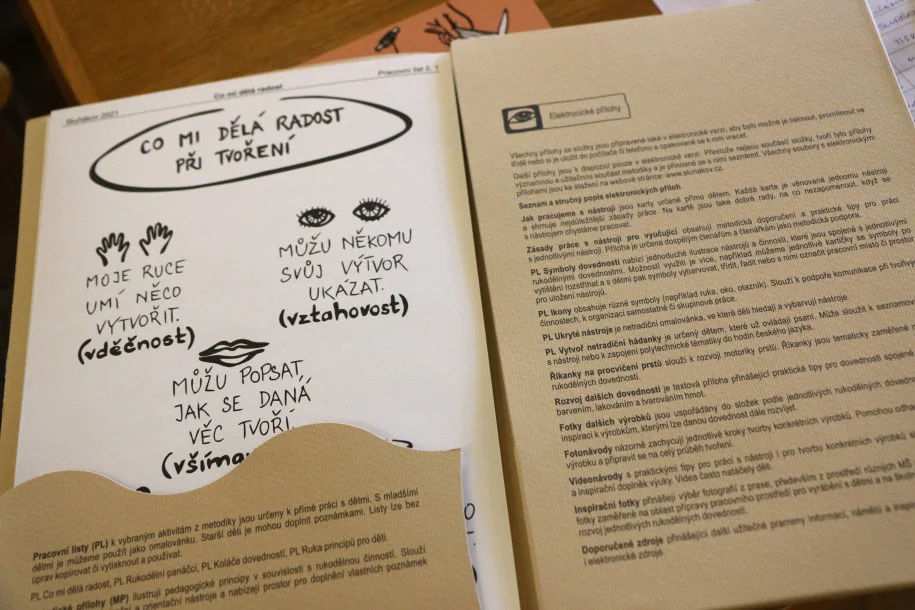 Sluňákov 2021
Co mi dělá radost
Pracovní list č. 1
CO MI DĚLÁ RADOST
PŘI TVOŘENÍ
MOJE RUCE
UMÍ NĚCO
VYTVOŘIT.
(vděčnost)
MŮŽU NĚKOMU
SVŮJ VÝTVOR
UKÁZAT.
(vztahovost)
MŮŽU POPSAT,
JAK SE DANÁ
VĚC TVOŘÍ.
Pracovní listy (PL) k vybraným aktivitám z metodiky jsou určeny k přímé práci s dětmi. S mladšími
dětmi je můžeme použít jako omalovánku. Starší děti je mohou doplnit poznámkami. Listy lze bez
úprav kopírovat či vytisknout a používat.
PL Co mi dělá radost, PL Rukodělní panáčci, PL Koláče dovedností, PL Ruka principů pro děti.
přílohy (MP) ilustrují pedagogické principy v souvislosti s rukodělnou činností. Slouží
a orientační nástroje a nabízejí prostor pro doplnění vlastních poznámek
Elektronické přílohy
Všechny přílohy ze složky jsou připravené také v elektronické verzi, aby bylo možné je tisknout, promítnout ve
třídě nebo si je uložit do počítače či telefonu a opakovaně se k nim vracet.
Další přílohy jsou k dispozici pouze v elektronické verzi. Přestože nejsou součástí složky, tvoří tyto přílohy
významnou a užitečnou součást metodiky a je přínosné se s nimi seznámit. Všechny soubory s elektronickým
přílohami jsou ke stažení na webové stránce: www.slunakov.cz.
Seznam a stručný popis elektronických příloh
Jak pracujeme s nástroji jsou karty určené přímo dětem. Každá karta je věnovaná jednomu nástroji
a shrnuje nejdůležitější zásady práce. Na kartě jsou také dobré rady, na co nezapomenout, když se
s nástrojem chystáme pracovat.
Zásady práce s nástroji pro vyučující obsahují metodická doporučení a praktické tipy pro práci
s jednotlivými nástroji. Příloha je určena dospělým čtenářům a čtenářkám jako metodická podpora.
PL Symboly dovedností nabízí jednoduché ilustrace nástrojů a činností, které jsou spojené s jednotlivými
rukodělnými dovednostmi. Možností využití je více, například můžeme jednotlivé kartičky se symboly po
vytištění rozstříhat a s dětmi pak symboly vybarvovat, třídit, řadit nebo s nimi označit pracovní místo či prostor
pro uložení nástrojů.
PL Ikony obsahuje různé symboly (například ruka, oko, otazník). Slouží k podpoře komunikace při tvořivých
činnostech, k organizaci samostatné či skupinové práce.
PL Ukryté nástroje je netradiční omalovánka, ve které děti hledají a vybarvují nástroje.
PL Vytvoř netradiční hádanky je určený dětem, které už ovládají psaní. Může sloužit k seznamov
s nástroji nebo k zapojení polytechnické tématiky do hodin českého jazyka.
Říkanky na procvičení prstů slouží k rozvoji motoriky prstů. Říkanky jsou tematicky zaměřené n
rukodělných dovedností.
Rozvoj dalších dovedností je textová příloha přinášející praktické tipy pro dovednosti spojené
barvením, lakováním a tvarováním hmot.
Fotky dalších výrobků jsou uspořádány do složek podle jednotlivých rukodělných dovedno
inspiraci k výrobkům, kterými lze danou dovednost dále rozvíjet.
Fotonávody názorně zachycují jednotlivé kroky tvorby konkrétních výrobků. Pomohou odha
výrobku a připravit se na celý průběh tvoření.
Videonávody s praktickými tipy pro práci s nástroji i pro tvorbu konkrétních výrobků
a inspirační doplněk výuky. Videa často natáčely děti.
Inspirační fotky přinášejí výběr fotografií z praxe, především z prostředí různých MŠ
fotky zaměřené na oblast přípravy pracovního prostředí pro vyrábění s dětmi a na
rozvoj jednotlivých rukodělných dovedností.
Doporučené zdroje přinášející další užitečné prameny informací, námětů a inspi
i elektronické zdroje.